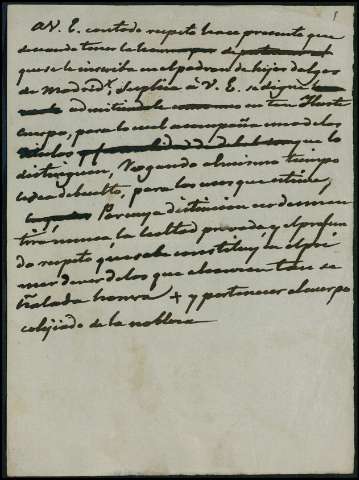 1
a V. E. con todo respeto hace presente que
deseando tener la de
que se le inscriba en el padron de hijos dalgo
de Madrid, suplica á V. E. se digne
admitirle en tan Ilustre
cuerpo, para lo cual acompaña uno de los
titulos que lo
distinguen, Rogando al mismo tiempo
le sea debuelto, para los usos que estime,
Por cuya distincion no desmen
tirá nunca la lealtad probada y el profun
do respeto que sabe constituye el pri
mer deber de los que alcanzan tan se
ñalada honra + y pertenecer al cuerpo
colejiado de la nobleza